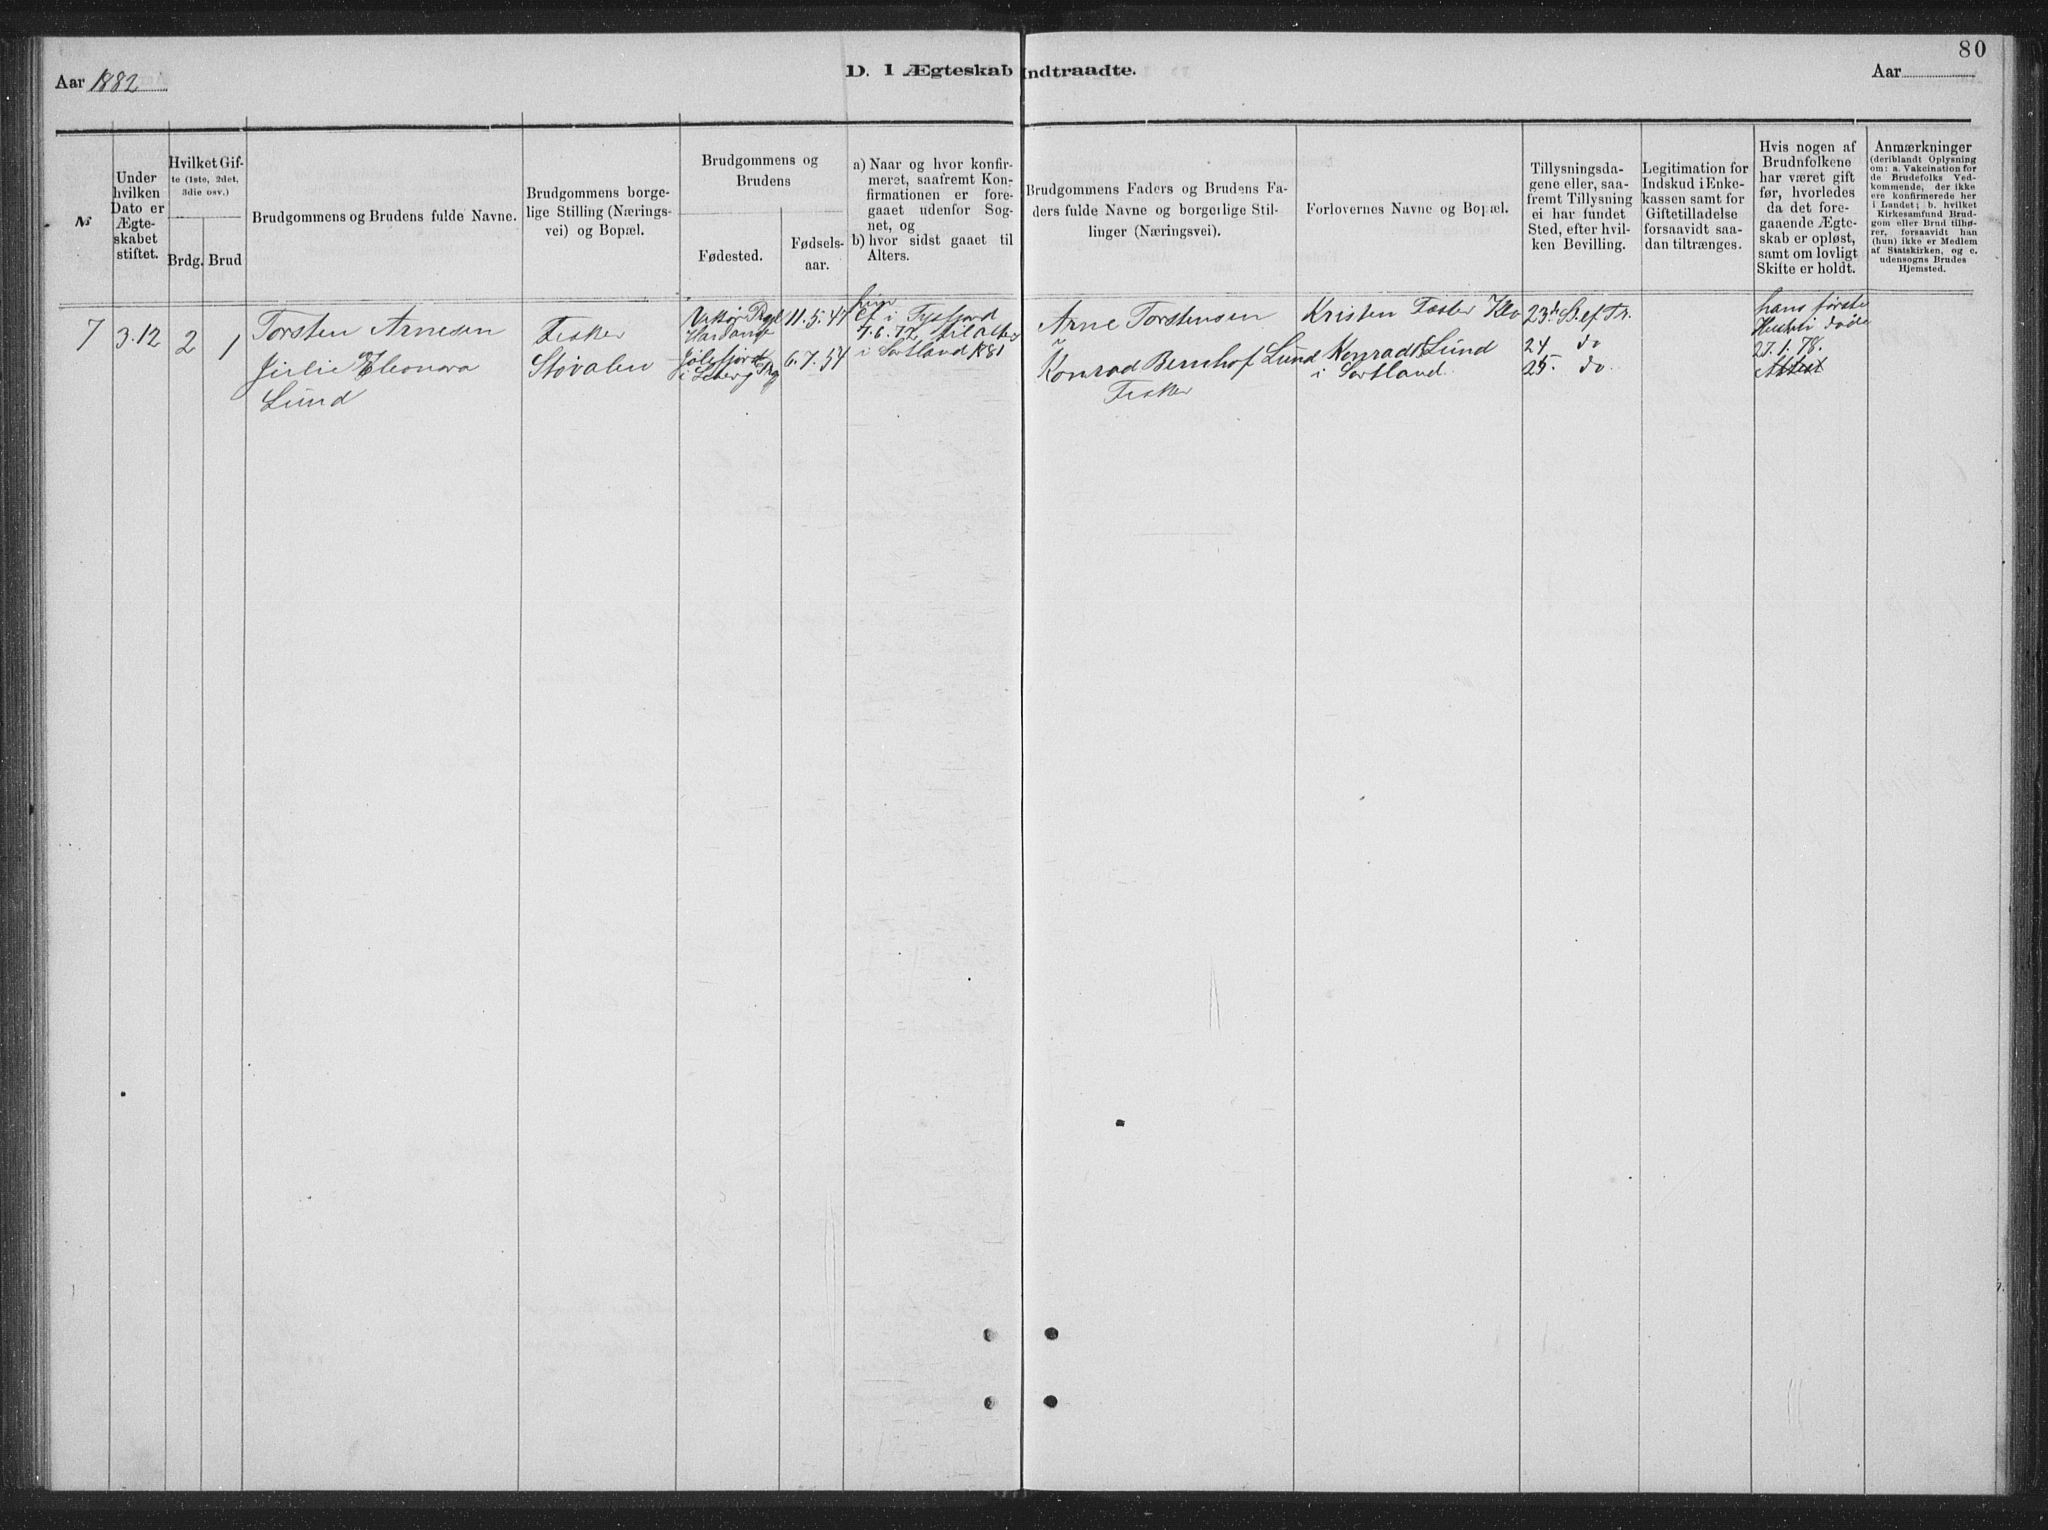 80
Aar 1882
D. I Ægteskab Indtraadte.
Aar
№
Under hvilken Dato er Ægteskabet stiftet.
Hvilket Gifte (1ste, 2det, 3die osv.)
Brdg. Brud
Brudgommens og Brudens fulde Navne.
Brudgommens borgelige Stilling (Næringsvei) og Bopæl.
Brudgommens og Brudens
Fødested.
Fødselsaar.
a) Naar og hvor konfirmeret, saafremt Konfirmationen er foregaaet udenfor Sognet, og
b) hvor sidst gaaet til Alters.
Brudgommens Faders og Brudens Faders fulde Navne og borgerlige Stillinger (Næringsvei).
Forlovernes Navne og Bopæl.
Tillysningsdagene eller, saafremt Tillysning ei har fundet Sted, efter hvilken Bevilling.
Legitimation for Indskud i Enkekassen samt for Giftetilladelse forsaavidt saadan tiltrænges.
Hvis nogen af Brudnfolkene har været gift før, hvorledes da det foregaaende Ægteskab er opløst, samt om lovligt Skifte er holdt.
Anmærkninger
(deriblandt Oplysning om: a. Vakcination for de Brudefolks Vedkommende, der ikke ere konfirmerede her i Landet; b. hvilket Kirkesamfund Brudgom eller Brud tilhører, forsaavidt han (hun) ikke er Medlem af Statskirken, og c. udensogns Brudes Hjemsted.
7 3.12 2 1
Torsten Arnesen
Julie Eleonora
Lund
Fisker
Støvalen
Hardang
11.5.47
6.7.54
i Tysfjord
7.6.72 til Alters
i Sortland 1881
Arne Torstensen
Konrad Bernhof Lund
Fisker
Kristen Klo
Konrad Lund
i Sortland
23d S. ef Tr.
24. do
25. do
hans første
Hustru døde
27.1.78.
Attest